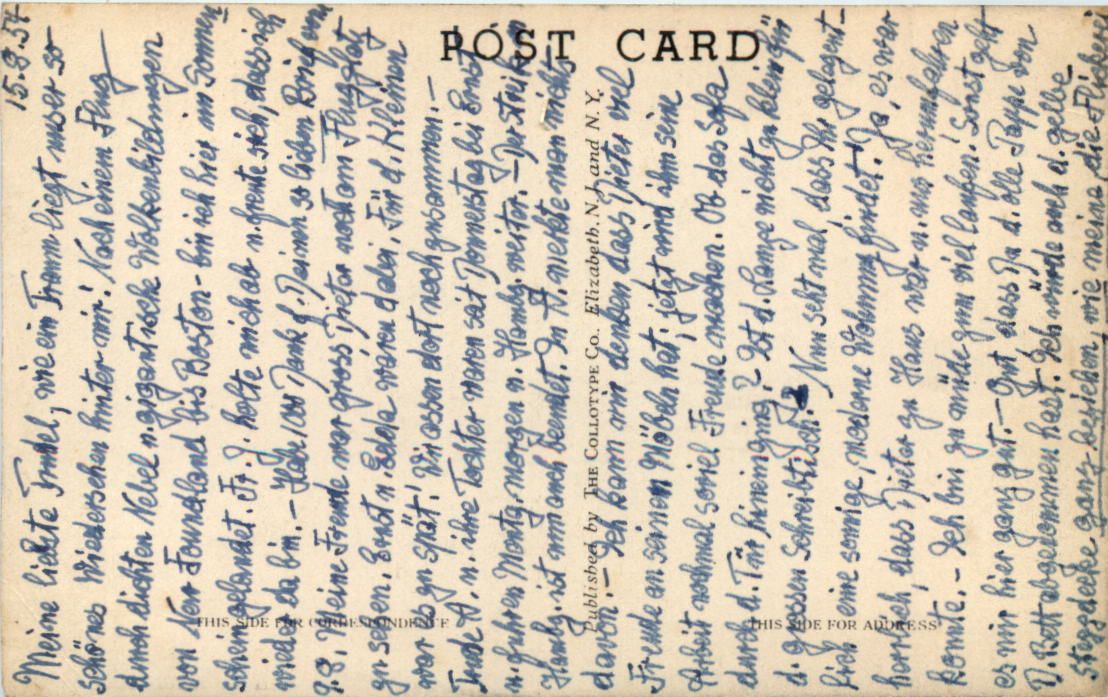 POST CARD
THIS SIDE FOR CORRESPONDENCE
THIS SIDE FOR ADDRESS
Published by THE COLLOTYPE Co. Elizabeth. N.J. and N.Y.
15.8.54
Meine liebste Trudel, wie ein Traum liegt unser so
schönes Wiedersehen hinter mir! Nach einem Flug
durch dichten Nebel u. gigantische Wolkenbildungen
von New Foundland bis Boston - bin ich hier im Sonnen
schein gelandet. Fr. J. holte mich ab u. freute sich, dass ich
wieder da bin. - Habe 1000 Dank f. Deinen so lieben Brief vom
9.8. Meine Freude war gross Dieter noch am Flugplatz
zu sehen. Ernst u. Edela waren da, Für d. Kleinen
war es zu spät! Wir assen dort noch zusammen. -
Trude A. u. ihre Tochter waren seit Donnerstag bei Ernst
u. fuhren Montg. morgen n. Hambg. weiter. - Der Streik in
Hambg. ist nun auch beendet. In H. merkte man nichts
davon. - Ich kann mir denken dass Dieter viel
Freude an seinen Möbeln hat; jetzt wird ihm seine
Arbeit nochmal soviel Freude machen. Ob das Sofa
durch d. Tür hineinging? Ist d. Lampe nicht zu klein für
d. grossen Schreibtisch? Nun seht mal, dass Ihr gelegent-
lich eine sonnige, moderne Wohnung findet! Ja, es war
herrlich, dass Dieter zu Haus war u. uns herumfahren
konnte. - Ich bin zu müde zum viel laufen! Sonst geht
es mir hier ganz gut. - Gut, dass Du d. olle Pappe von
D. Bett abgenommen hast. Ich würde auch d. gelbe
Steppdecke ganz beziehen, wie meine, die